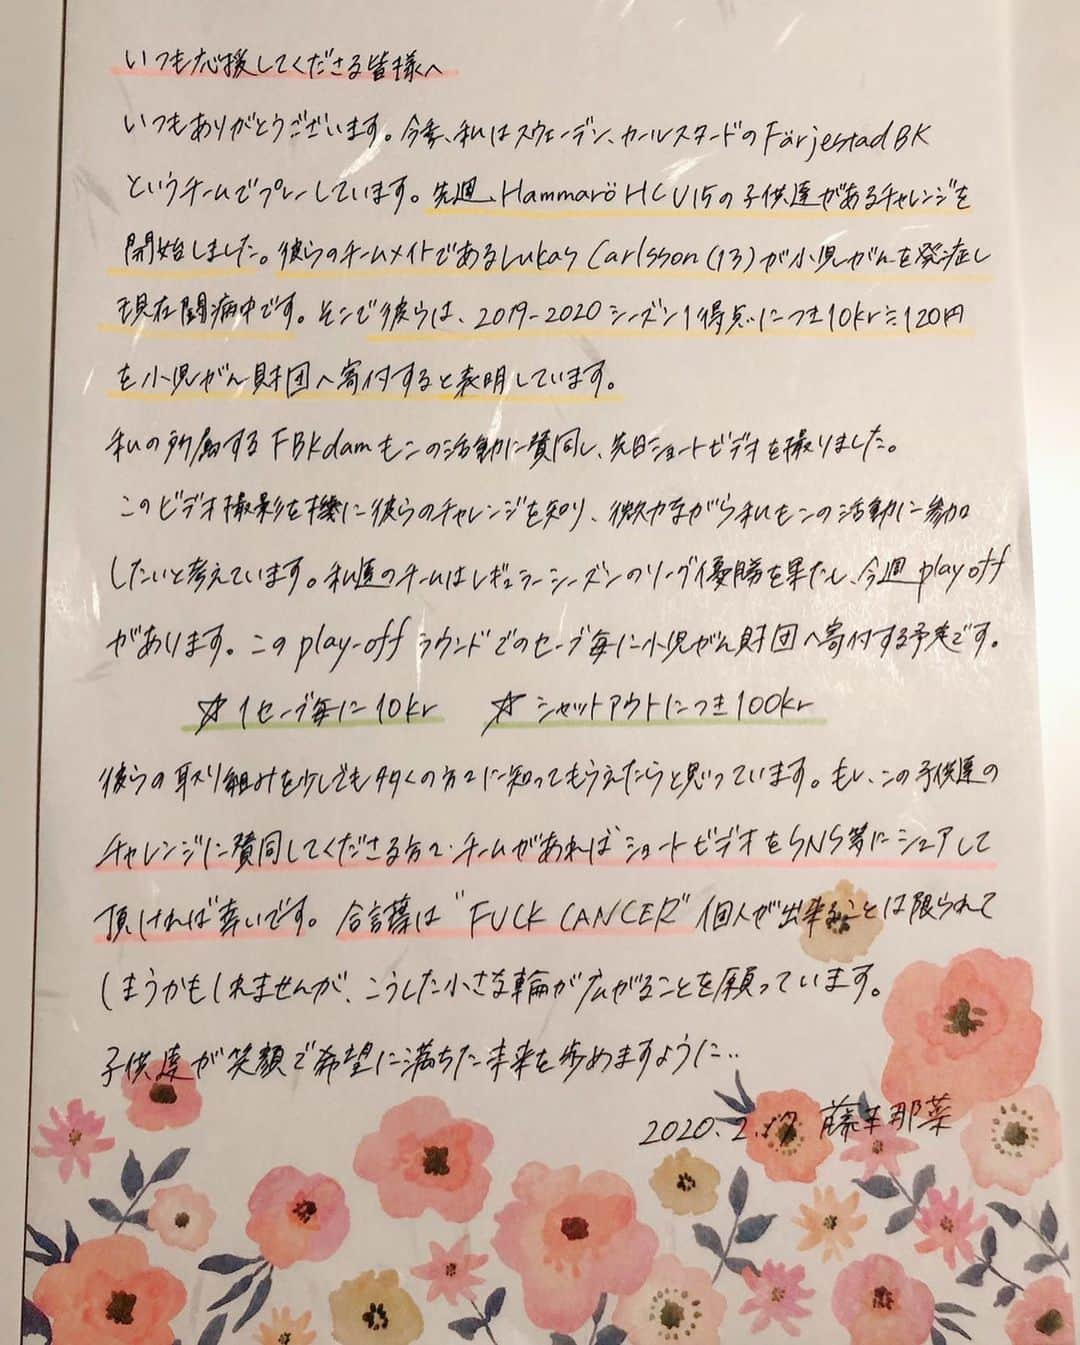 いつも応援してくださる皆様へ
いつもありがとうございます。今季、私はスウェーデン、カールスタードのFärjestad BK
というチームでプレーしています。先週、Hammarö HC U15の子供達があるチャレンジを
開始しました。彼らのチームメイトであるLukas Carlsson (13) が小児がんを発症し
現在闘病中です。そこで彼らは、2019-2020 シーズン1得点につき10kr≒120円
を小児がん財団へ寄付すると表明しています。
私の所属するFBKdamもこの活動に賛同し、先日ショートビデオを撮りました。
このビデオ撮影を機に彼らのチャレンジを知り、微力ながら私もこの活動に参加
したいと考えています。私達のチームはレギュラーシーズンのリーグ優勝を果たし、今週 play off
があります。この play-off ラウンドでのセーブ毎に小児がん財団へ寄付する予定です。
☆ 1セーブ毎に 10kr ☆ シャットアウトにつき 100kr
彼らの取り組みを少しでも多くの方々に知ってもらえたらと思っています。もし、この子供達の
チャレンジに賛同してくださる方々・チームがあればショートビデオをSNS等にシェアして
頂ければ幸いです。合言葉は"FUCK CANCER" 個人が出来ることは限られて
しまうかもしれませんが、こうした小さな輪が広がることを願っています。
子供達が笑顔で希望に満ちた未来を歩めますように..
2020. 2. 17 藤本那菜